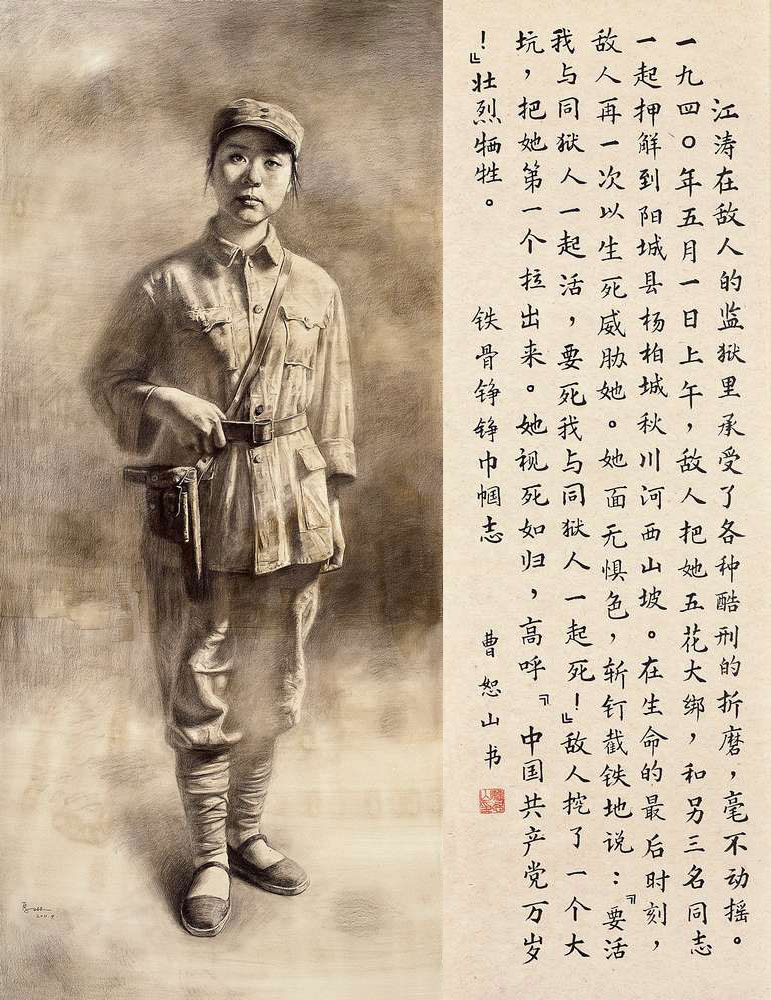 江涛在敌人的监狱里承受了各种酷刑的折磨，毫不动摇。
一九四〇年五月一日上午，敌人把她五花大绑，和另三名同志
一起押解到阳城县杨柏城秋川河西山坡。在生命的最后时刻，
敌人再一次以生死威胁她。她面无惧色，斩钉截铁地说：『要活
我与同狱人一起活，要死我与同狱人一起死！』敌人挖了一个大
坑，把她第一个拉出来。她视死如归，高呼『中国共产党万岁
！』壮烈牺牲。
铁骨铮铮巾帼志
曹恕山书